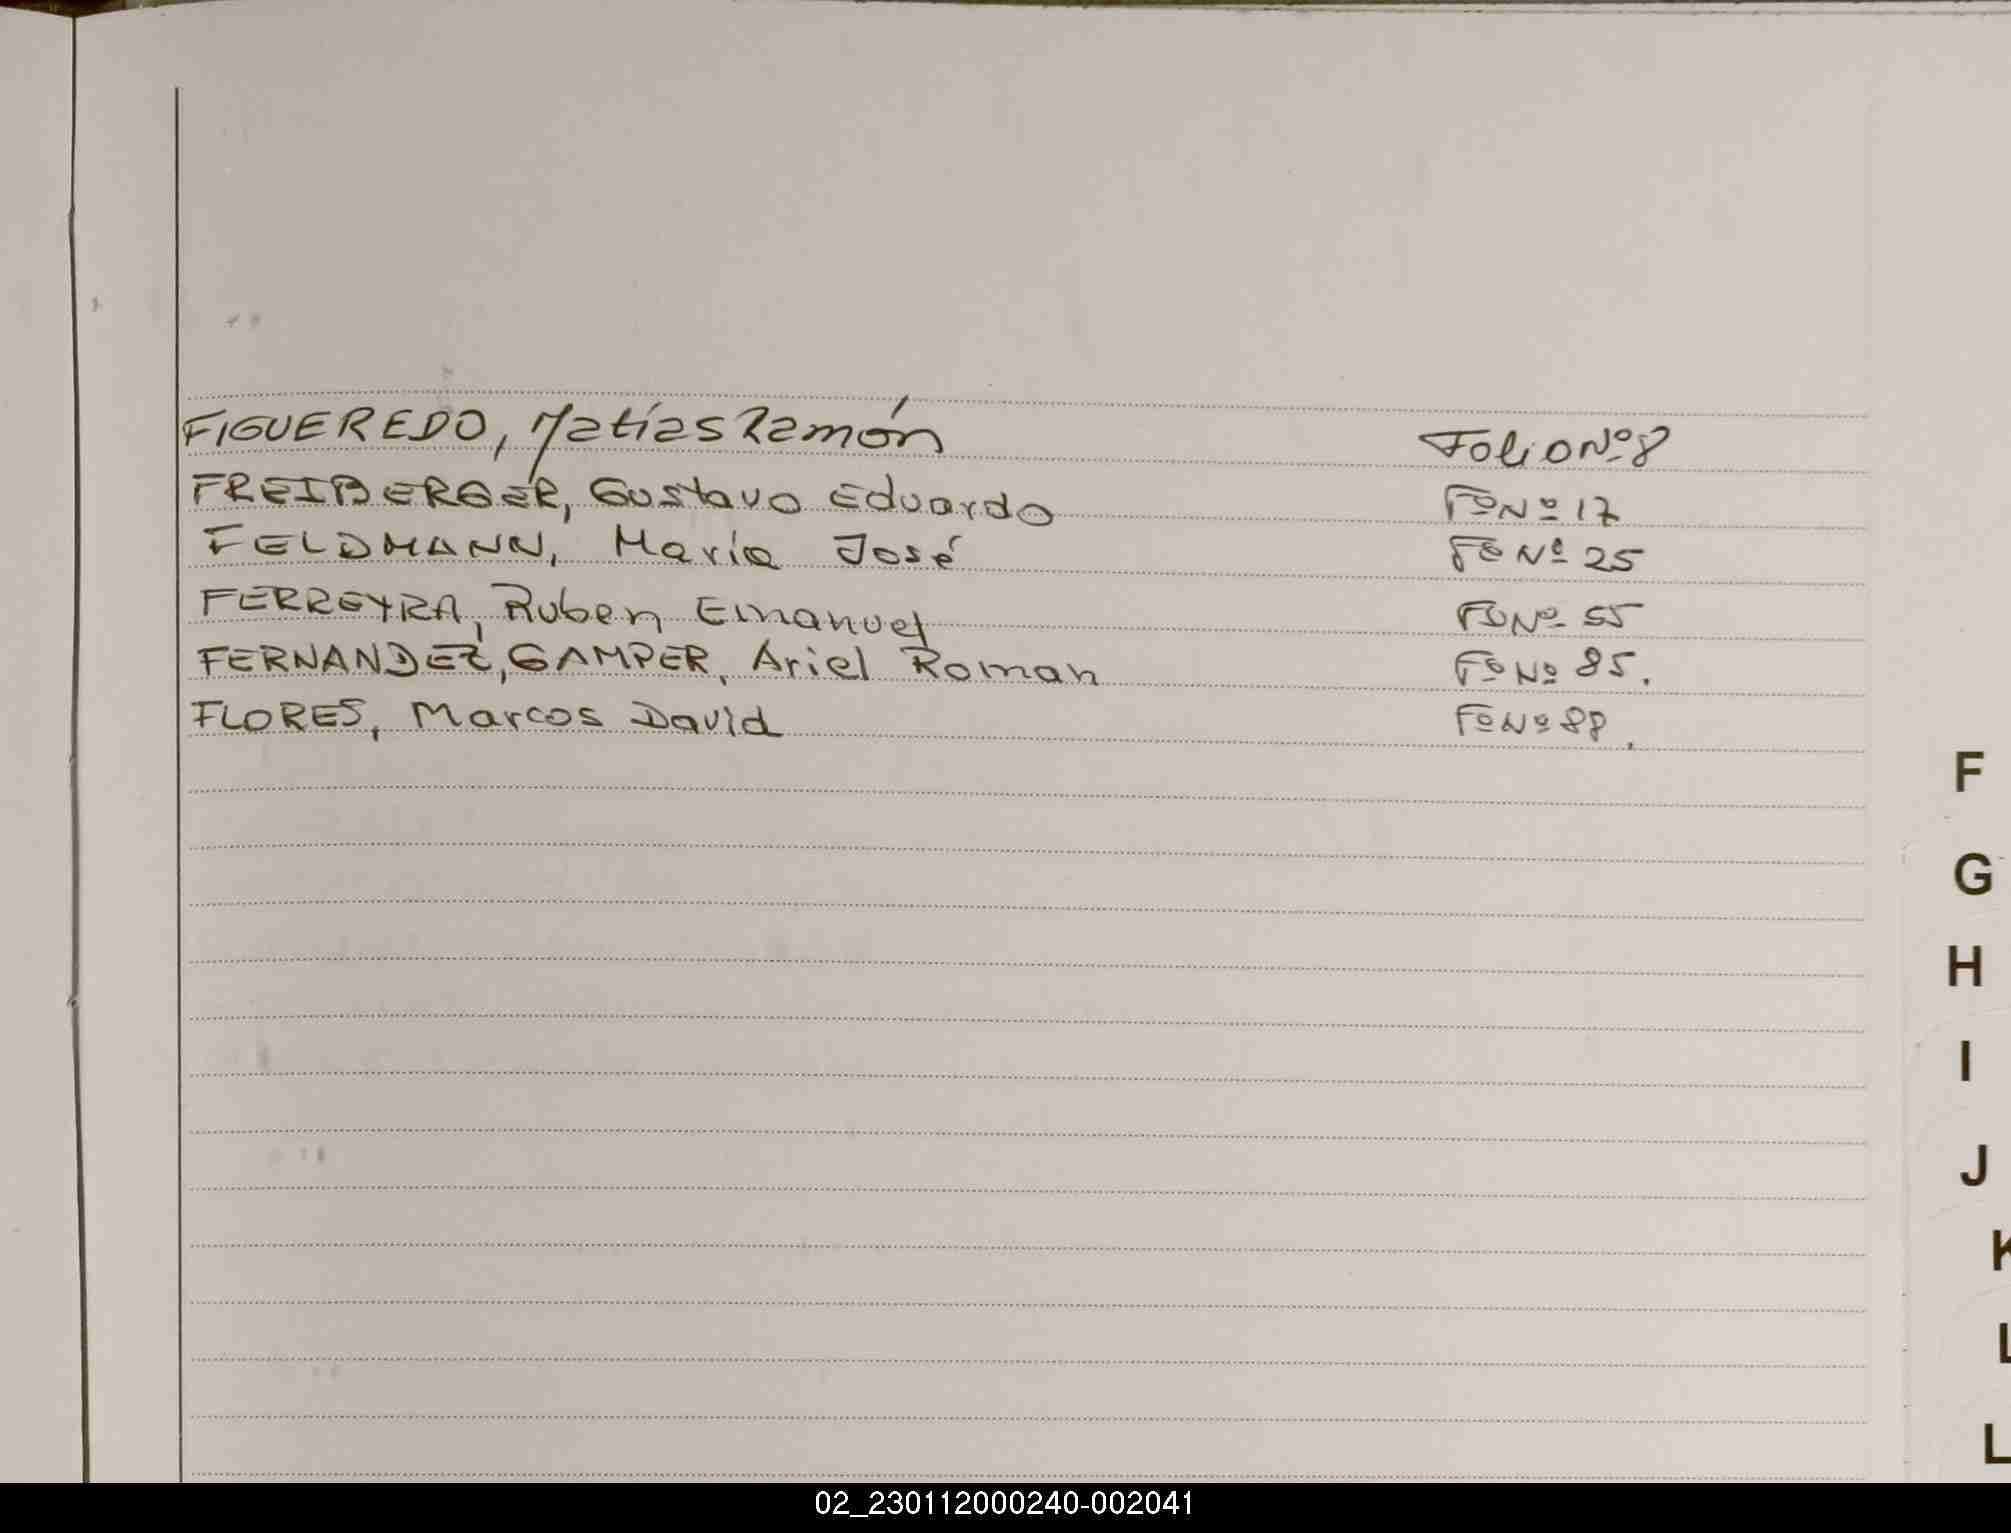 FIGUEREDO, Matías Ramón Folio Nº 8
FREIBERGER, Gustavo Eduardo Fº Nº 17
FELDMANN, María José Fº Nº 25
FERREYRA, Ruben Emanuel Fº Nº 55
FERNANDEZ, GAMPER, Ariel Roman Fº Nº 85.
FLORES, Marcos David Fº Nº 88.
F
G
H
I
J
K
L
L
02_230112000240-002041